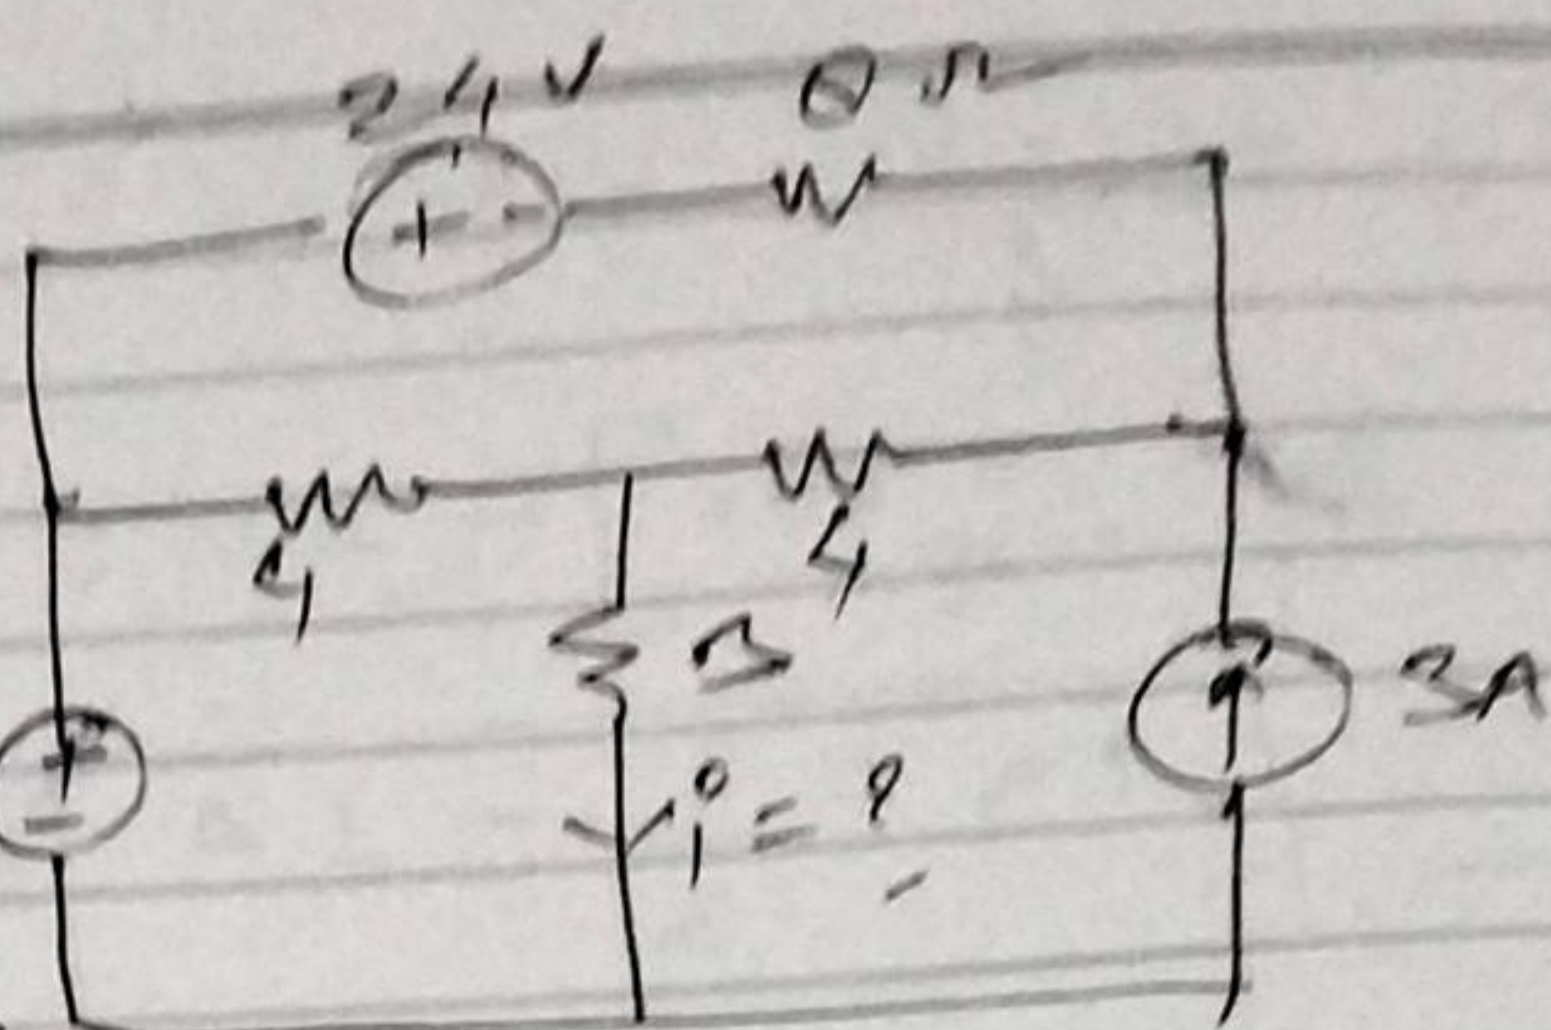 24V θΩ
+ -
4 4
3
+ 3A
-
i = ?